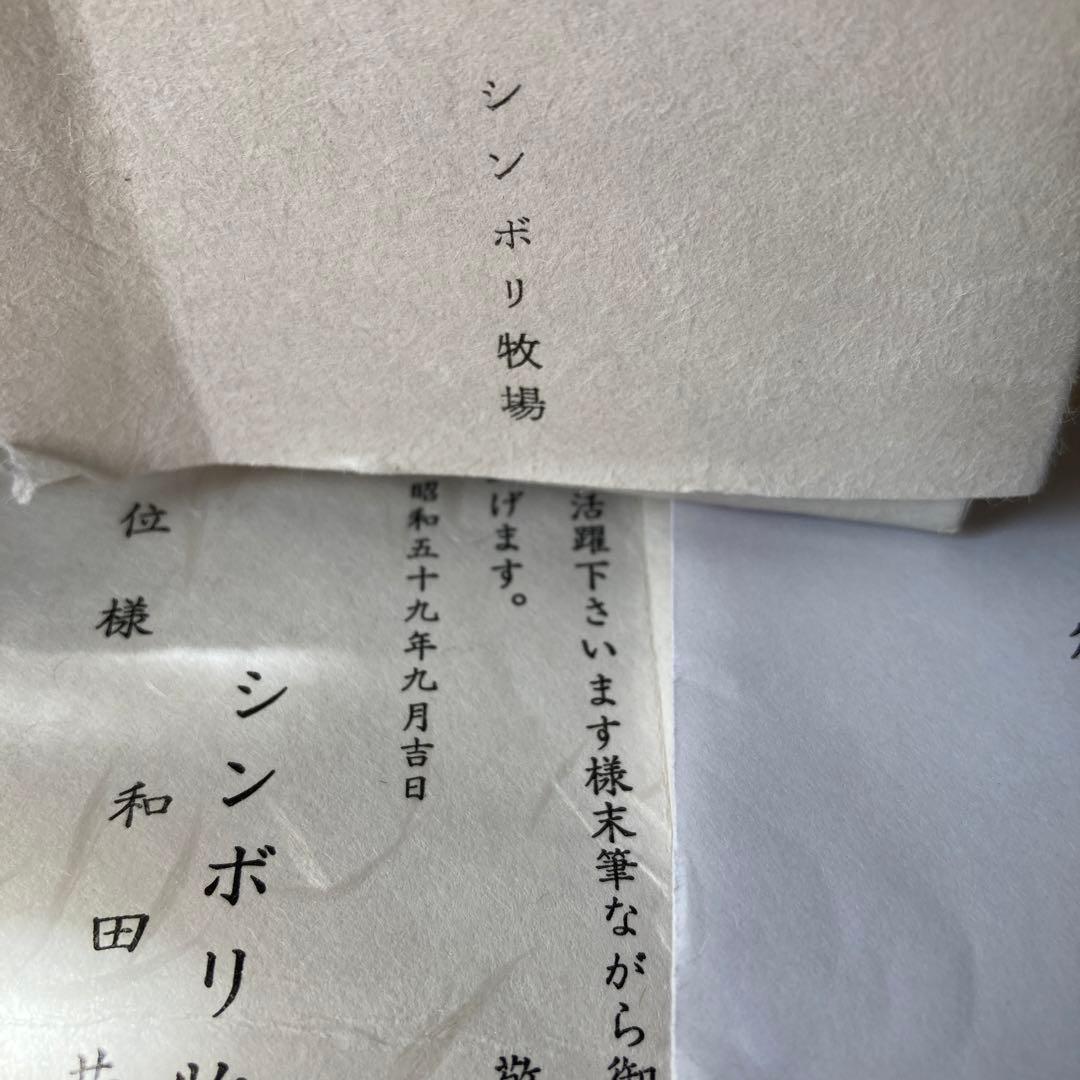 シンボリ牧場
活躍下さいます様末筆ながら御
げます。
敬
昭和五十九年九月吉日
シンボリ牧
位様
和田共